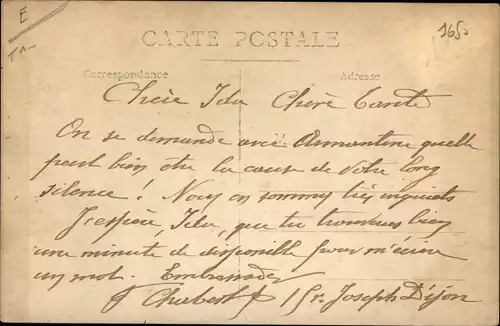 E
1650
CARTE POSTALE
Correspondance Adresse
Chère Ida Chère Tante
On se demande avec Armantine quelle
peut bien être la cause de Votre long
silence ! Nous en sommes très inquiets
J'espère, Ida, que tu trouveras bien
une minute de disponible pour m'écrire
un mot. Embrassades
J Chabert 15 r. Joseph Dijon